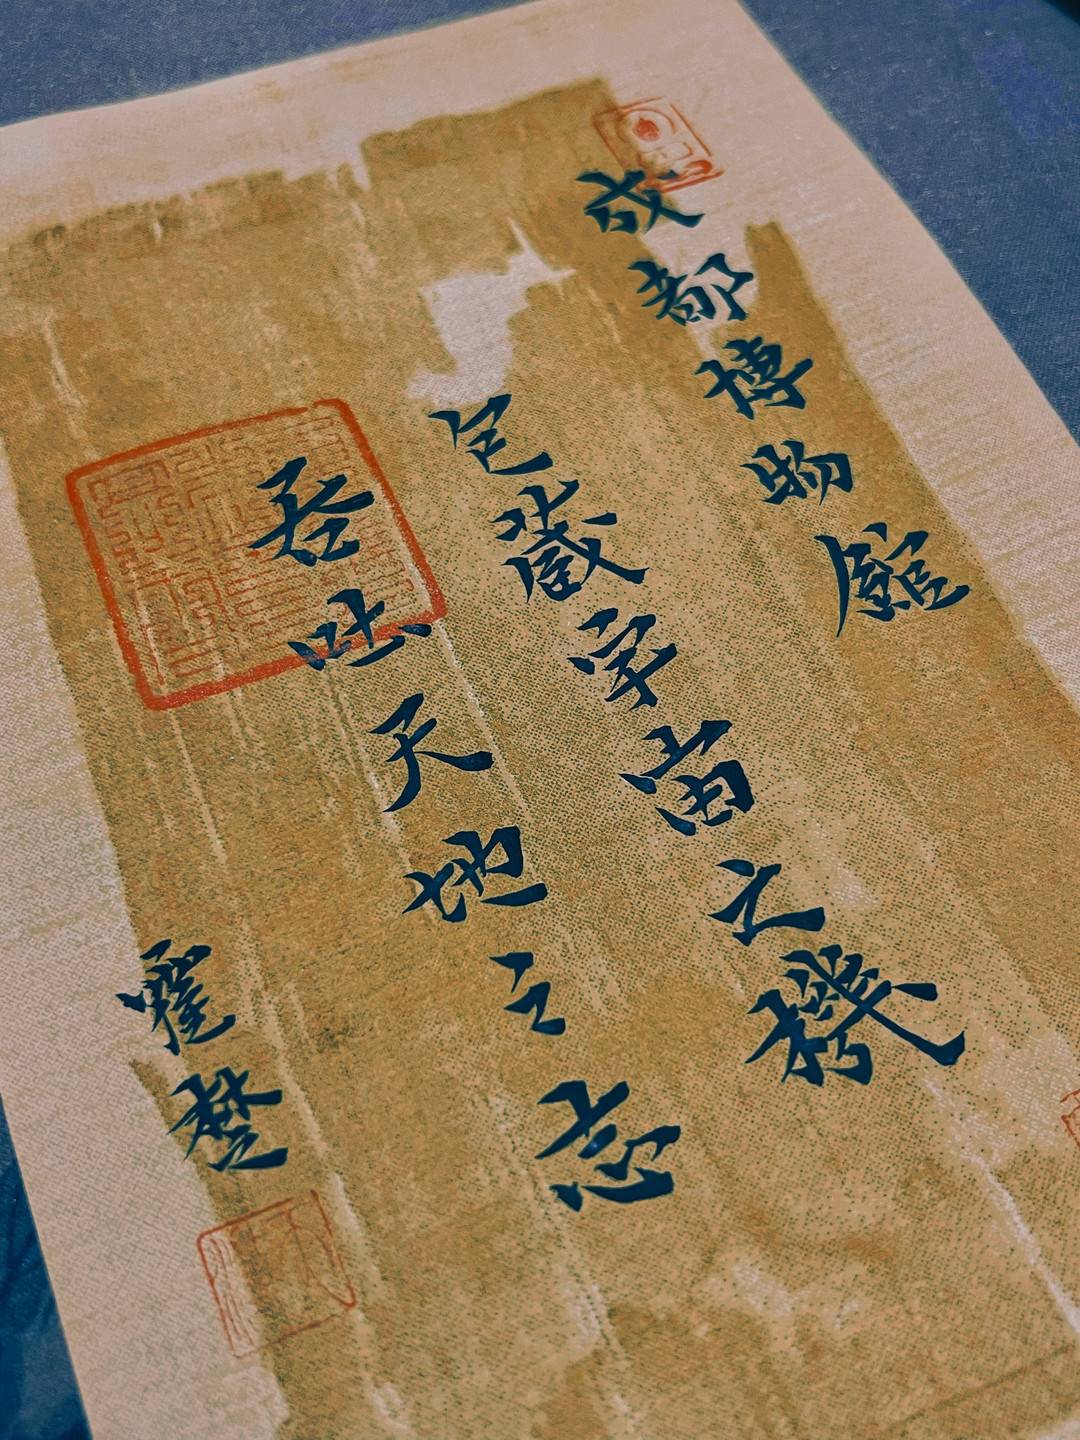 成都博物館
包藏宇宙之機
吞吐天地之志
楚